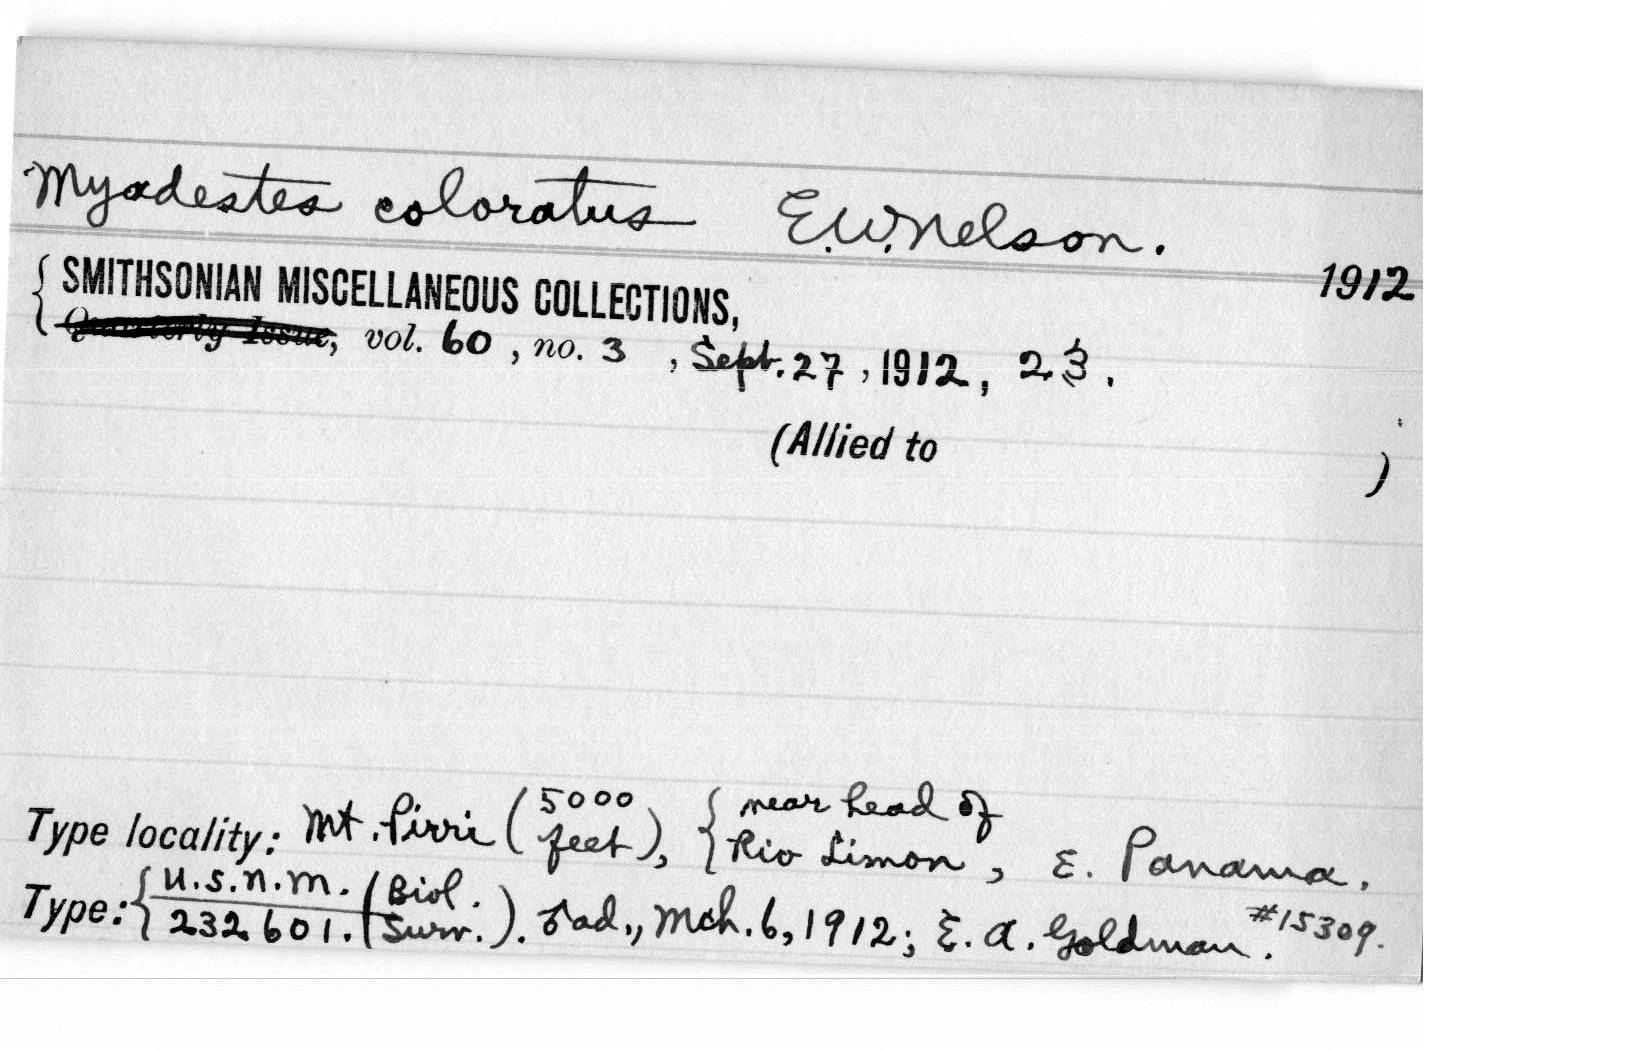 Myadestes coloratus E.W. Nelson.
1912
{ SMITHSONIAN MISCELLANEOUS COLLECTIONS,
Quarterly Issue, vol. 60, no. 3, Sept. 27, 1912, 23.
(Allied to )
Type locality: Mt. Pirri (5000 feet), { near head of Rio Limon, E. Panama.
Type: { U.S.N.M. 232601. (Biol. Surv.). ♂ad., Mch. 6, 1912; E. A. Goldman. #15309.